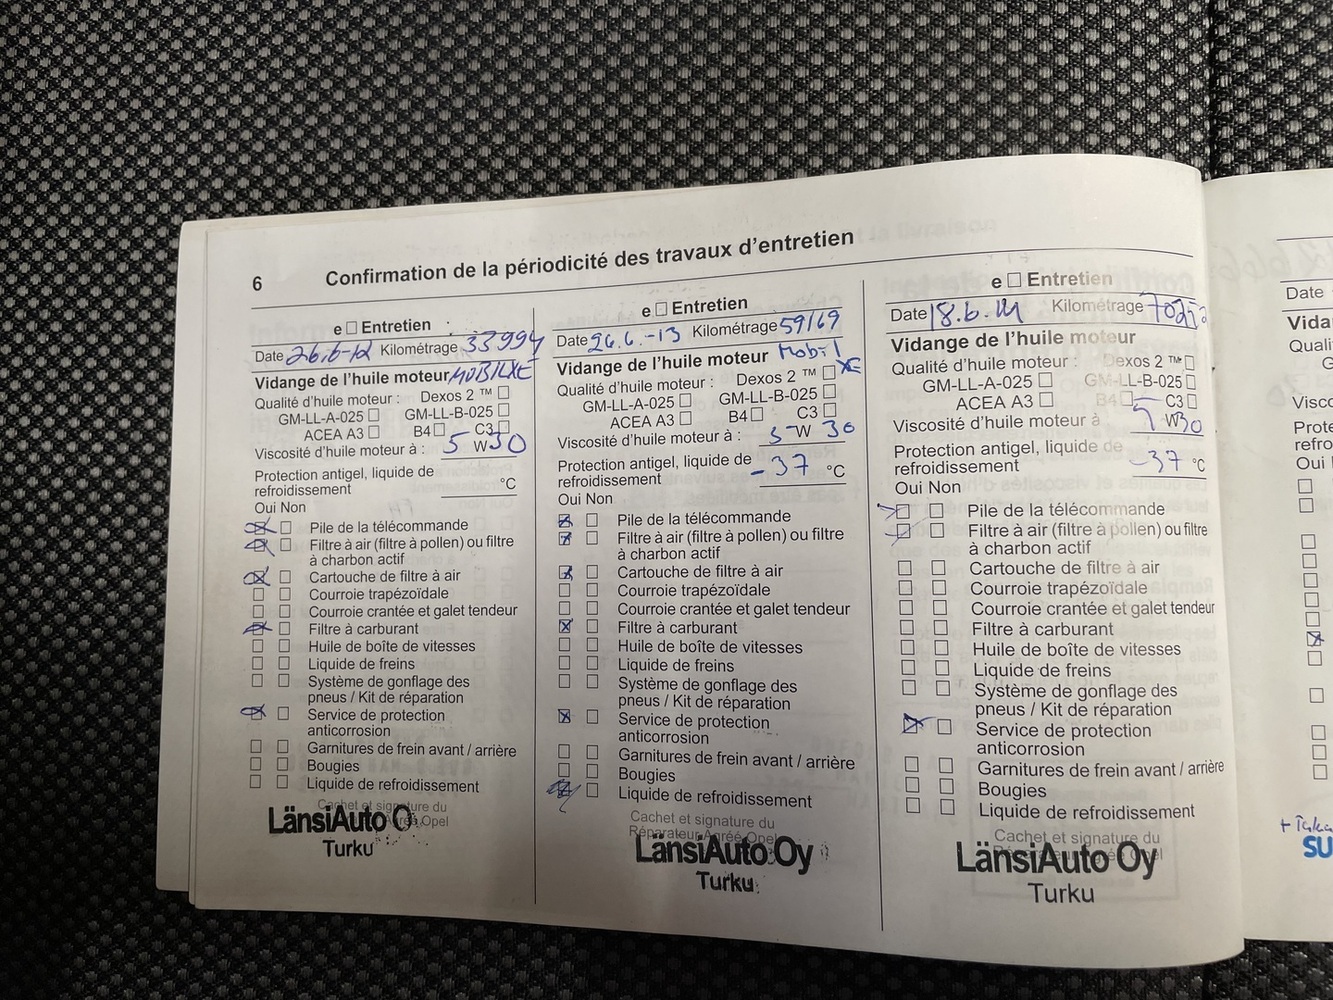 6 Confirmation de la périodicité des travaux d'entretien
e☐ Entretien
Date 26.6-12 Kilométrage 33994
Vidange de l'huile moteur MOBIL XE
Qualité d'huile moteur : Dexos 2 ™ ☐
GM-LL-A-025 ☐ GM-LL-B-025 ☐
ACEA A3 ☐ B4 ☐ C3 ☐
Viscosité d'huile moteur à : 5 W 30
Protection antigel, liquide de
refroidissement °C
Oui Non
Pile de la télécommande
Filtre à air (filtre à pollen) ou filtre
à charbon actif
Cartouche de filtre à air
Courroie trapézoïdale
Courroie crantée et galet tendeur
Filtre à carburant
Huile de boîte de vitesses
Liquide de freins
Système de gonflage des
pneus / Kit de réparation
Service de protection
anticorrosion
Garnitures de frein avant / arrière
Bougies
Liquide de refroidissement
Cachet et signature du
Agréé Opel
LänsiAuto O
Turku
e☐ Entretien
Date 26.6.-13 Kilométrage 59169
Vidange de l'huile moteur Mobil
Qualité d'huile moteur : Dexos 2 ™ ☐ XE
GM-LL-A-025 ☐ GM-LL-B-025 ☐
ACEA A3 ☐ B4 ☐ C3 ☐
Viscosité d'huile moteur à : 5 W 30
Protection antigel, liquide de
refroidissement -37 °C
Oui Non
Pile de la télécommande
Filtre à air (filtre à pollen) ou filtre
à charbon actif
Cartouche de filtre à air
Courroie trapézoïdale
Courroie crantée et galet tendeur
Filtre à carburant
Huile de boîte de vitesses
Liquide de freins
Système de gonflage des
pneus / Kit de réparation
Service de protection
anticorrosion
Garnitures de frein avant / arrière
Bougies
Liquide de refroidissement
Cachet et signature du
Réparateur Agréé Opel
LänsiAuto Oy
Turku
e☐ Entretien
Date 18.6.14 Kilométrage
Vidange de l'huile moteur
Qualité d'huile moteur : Dexos 2 ™ ☐
GM-LL-A-025 ☐ GM-LL-B-025 ☐
ACEA A3 ☐ B4 ☐ C3 ☐
Viscosité d'huile moteur à 5 W30
Protection antigel, liquide de
refroidissement -37 °C
Oui Non
Pile de la télécommande
Filtre à air (filtre à pollen) ou filtre
à charbon actif
Cartouche de filtre à air
Courroie trapézoïdale
Courroie crantée et galet tendeur
Filtre à carburant
Huile de boîte de vitesses
Liquide de freins
Système de gonflage des
pneus / Kit de réparation
Service de protection
anticorrosion
Garnitures de frein avant / arrière
Bougies
Liquide de refroidissement
Cachet et signature du
LänsiAuto Oy
Turku
Date
Vida
Quali
Visco
Prote
refro
Oui
SU